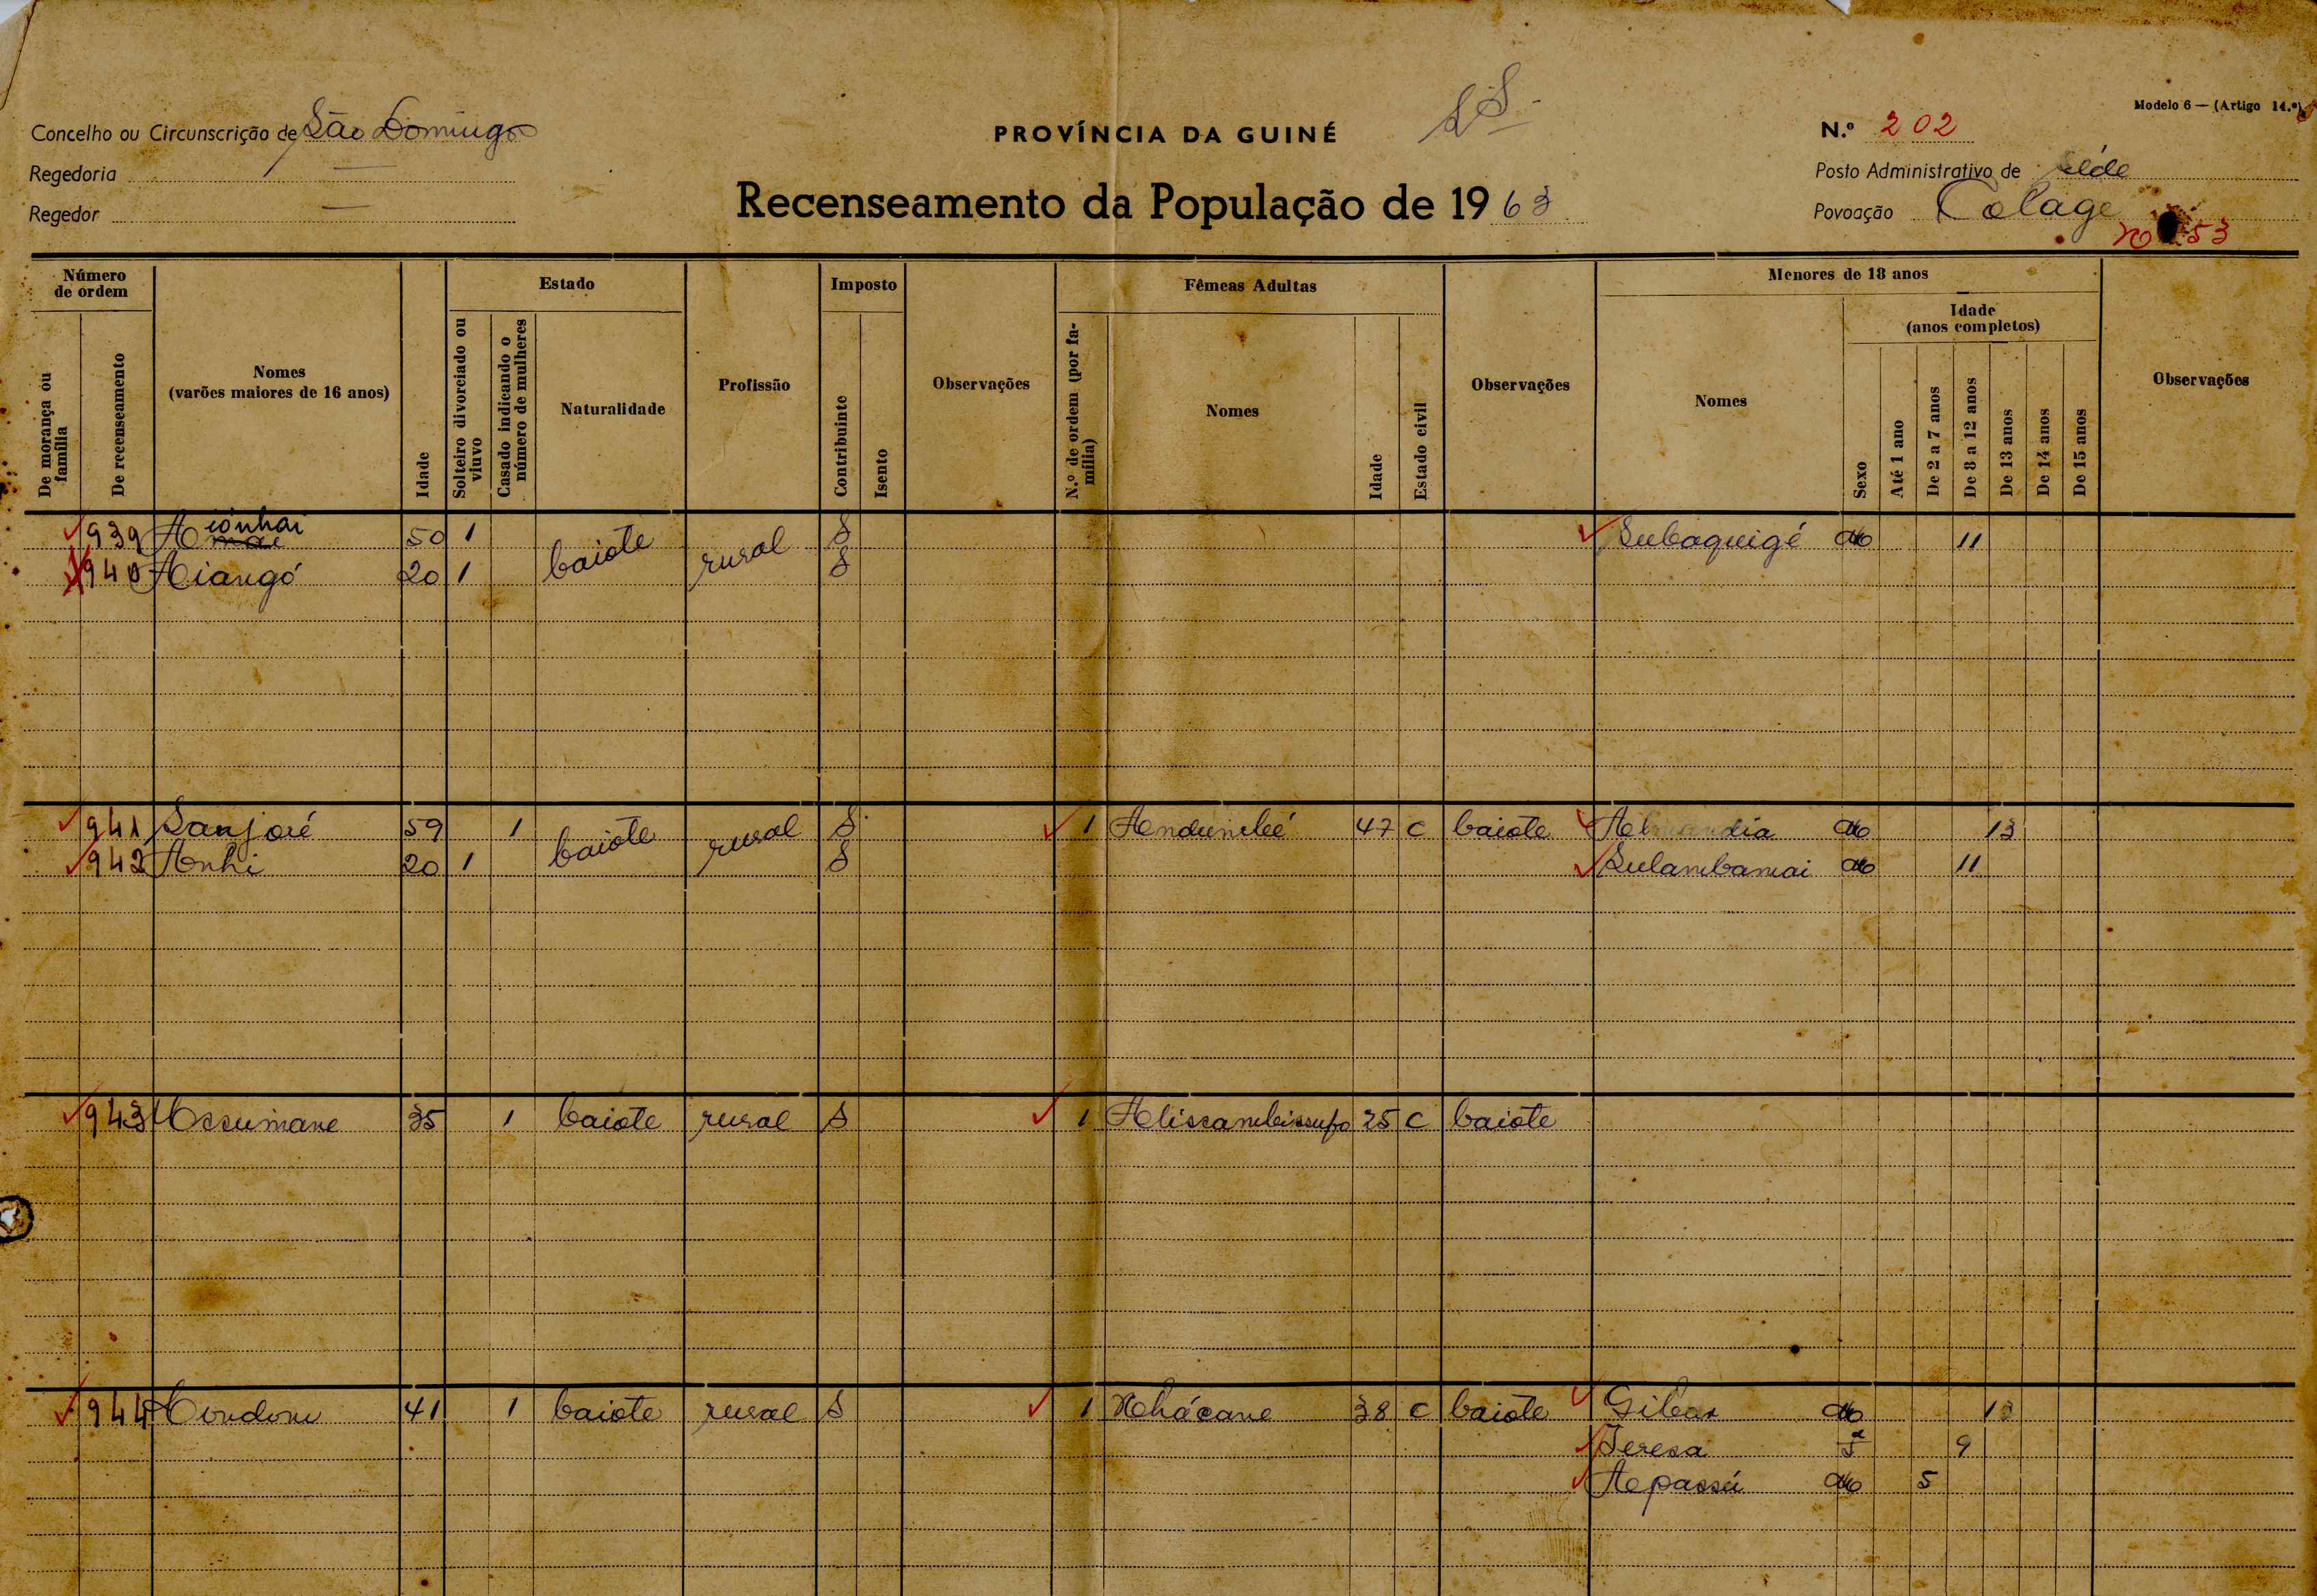 Modelo 6 — (Artigo 14.º)
Concelho ou Circunscrição de São Domingos
PROVÍNCIA DA GUINÉ
N.º 202
Regedoria —
Posto Administrativo de Séde
Regedor —
Recenseamento da População de 1963
Povoação Colage
nº 53
Número de ordem
Estado
Imposto
Fêmeas Adultas
Menores de 18 anos
Idade
(anos completos)
De morança ou família
De recenseamento
Nomes
(varões maiores de 16 anos)
Idade
Solteiro divorciado ou viuvo
Casado indicando o número de mulheres
Naturalidade
Profissão
Contribuinte
Isento
Observações
N.º de ordem (por família)
Nomes
Idade
Estado civil
Observações
Nomes
Sexo
Até 1 ano
De 2 a 7 anos
De 8 a 12 anos
De 13 anos
De 14 anos
De 15 anos
Observações
939 50 1 baiote rural S Subaquigé Mo 11
940 Aiangó 20 1 S
941 Sanjoré 59 1 baiote rural S 1 47 C baiote Mo 13
942 Anhi 20 1 S Sulambamai Mo 11
943 Ussumane 35 1 baiote rural S 1 Alissambissufo 25 C baiote
944 41 1 baiote rural S 1 Nhácane 38 C baiote Gibar Mo 13
Teresa F 9
Apassú Mo 5